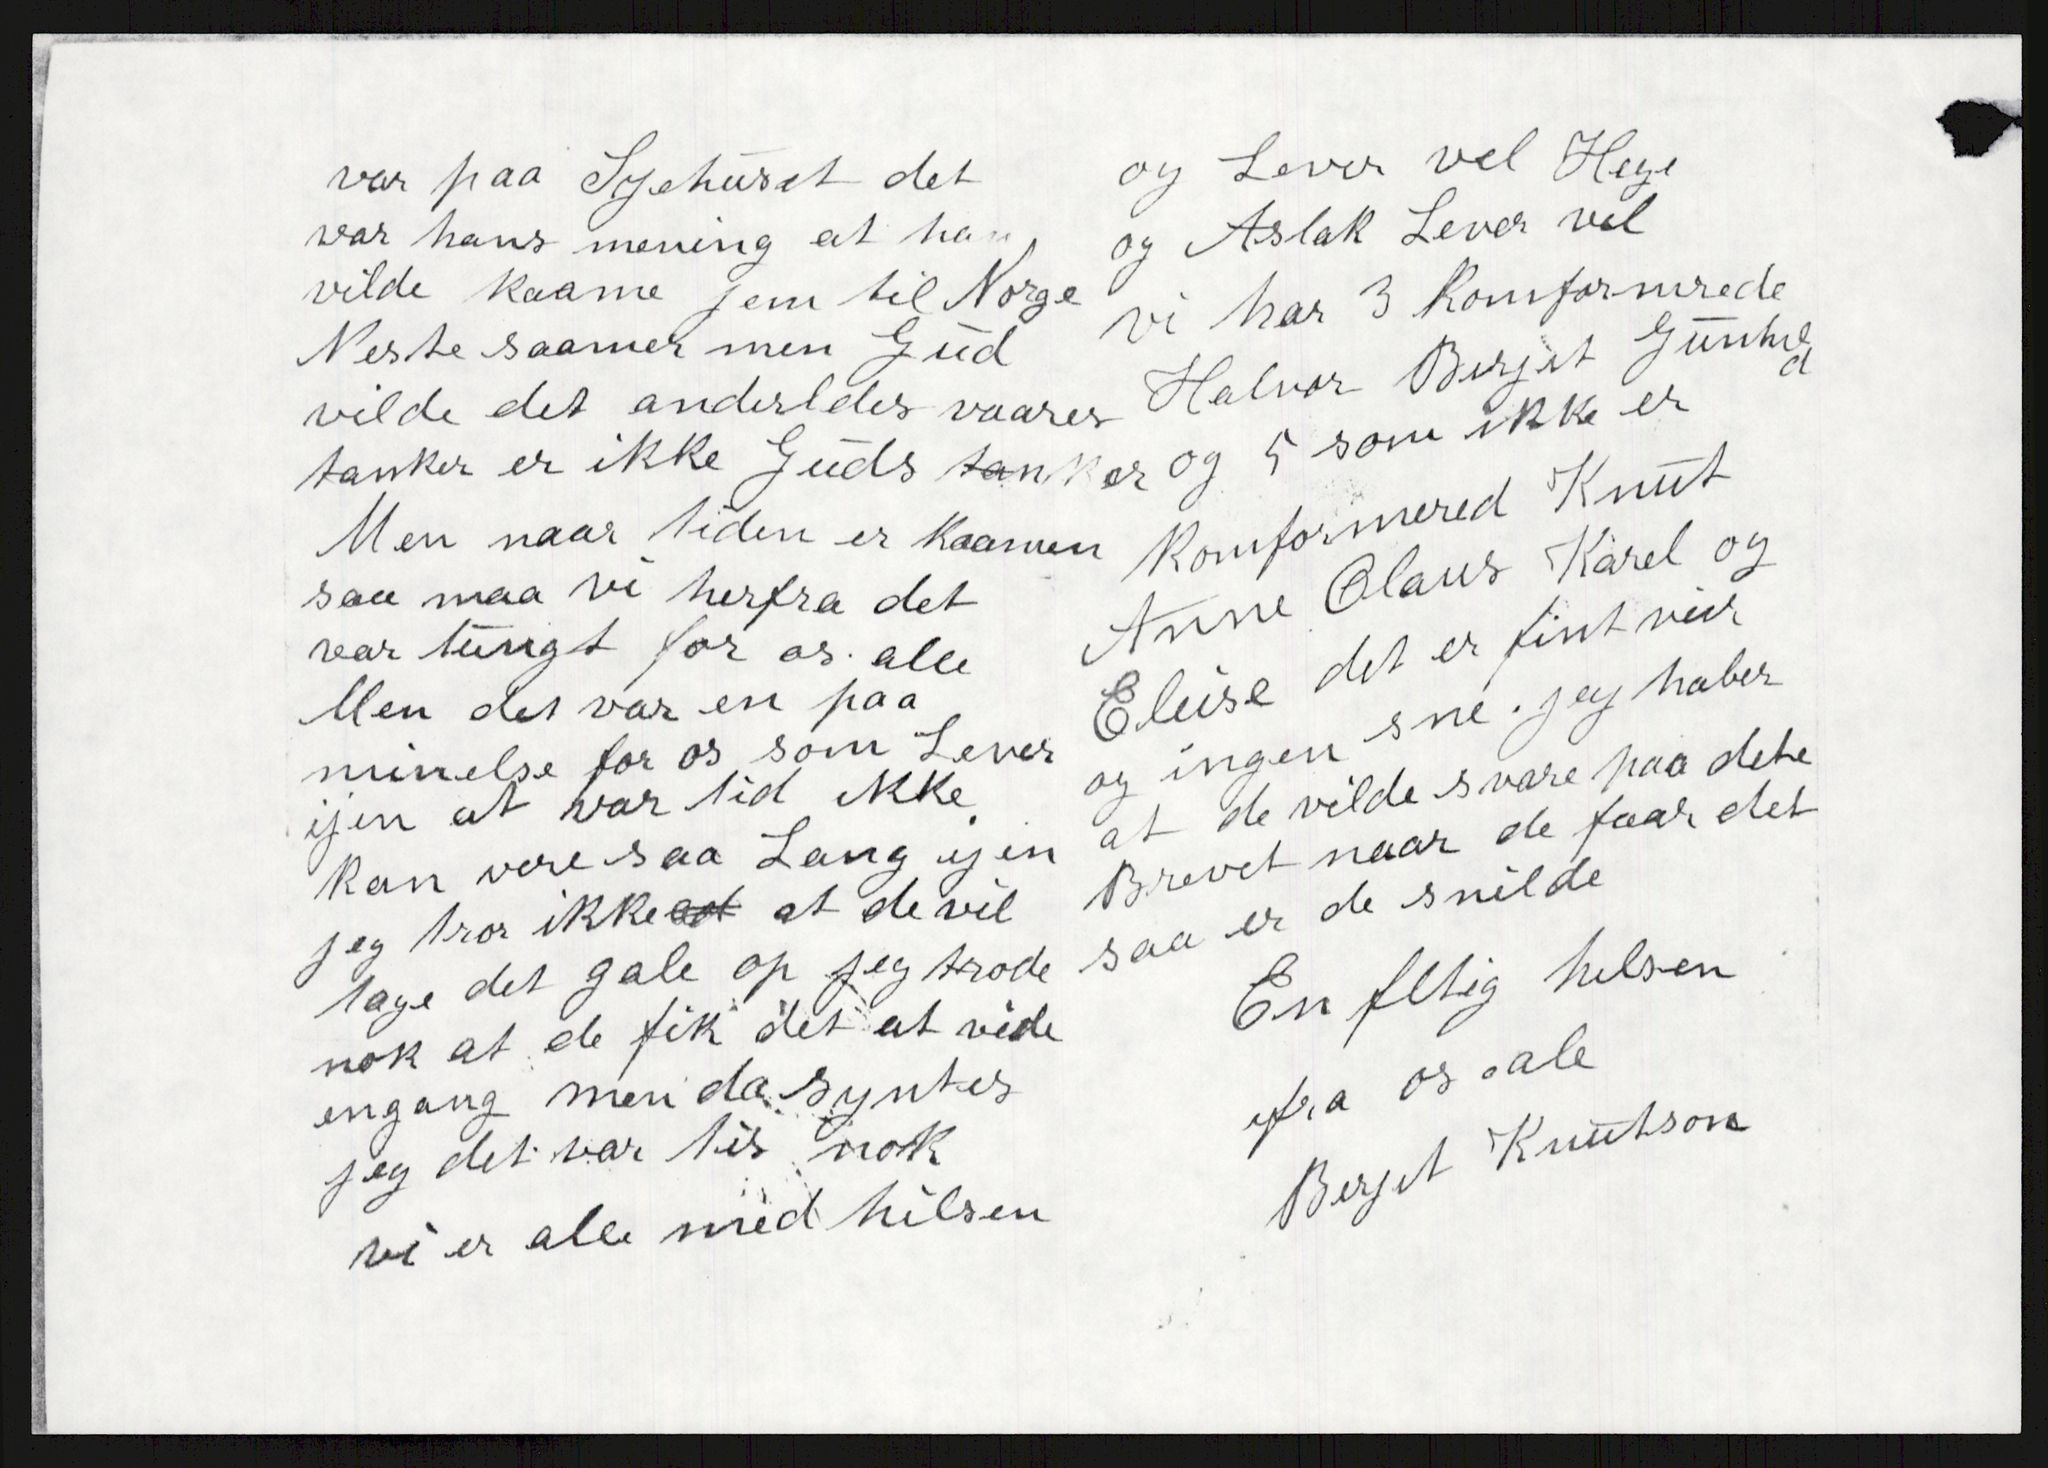 var paa Syehuset det
var hans mening at han
vilde kaame jem til Norge
Neste saamer men Gud
vilde det anderledes vaares
tanker er ikke Guds tanker
Men naar tiden er kaamen
saa maa vi herfra det
var tungt for os alle
Men det var en paa
minelse for os som Lever
ijen at var tid ikke
kan vere saa Lang ijen
jeg tror ikke at de vil
tage det gale op jeg trode
nok at de fik det at vide
engang men da syntes
jeg det var tis nok
vi er alle med hilsen
og Lever vel Hege
og Aslak Lever vel
vi har 3 Komformrede
Halvor Berjit Gunhild
og 5 som ikke er
Komformered Knut
Anne Olaus Karel og
Eleise det er fint veir
og ingen sne. jeg haber
at de vilde svare paa dete
Brevet naar de faar det
saa er de snilde
En fltig helsen
ifra os ale
Berjit Knutson